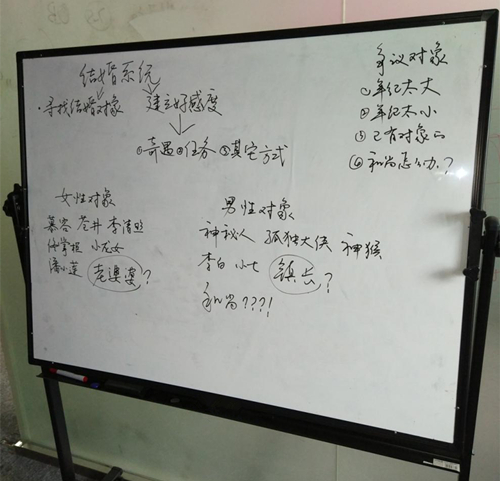 结婚系统
·寻找结婚对象 建立好感度
①奇遇②任务③其它方式
争议对象
①年纪太大
②年纪太小
③已有对象的
④和尚怎么办？
女性对象
慕容 苍井 李清照
掌柜 小龙女
潘小莲 老婆婆？
男性对象
神秘人 孤独大侠 神猴
李白 小七 镇长？
和尚？？？！